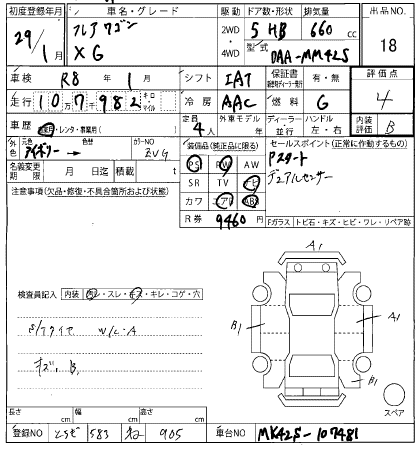 初度登録年月 車名・グレード 駆動 ドア数・形状 排気量 出品NO.
29年 1月 フレアワゴン XG 2WD・4WD 5 HB 660cc 18
型式 DAA-MM42S
車検 R8年 1月 シフト IAT 保証書 有・無 評価点
走行 10万7千982 キロ マイル 冷房 AAC 燃料 G 4
車歴 自家用・レンタ・事業用( ) 定員 4人 外車モデル 年式 ディーラー・並行 ハンドル 左・右 内装評価 B
外色 元色 アイボリー → 色替 カラーNO ZVG
装備品(純正品に限る) セールスポイント(正常に作動するもの)
PS PW AW Pスタート
名義変更期限 月 日迄 積載 t SR TV ナビ デュアルセンサー
注意事項(欠品・修復・不具合箇所および状態) カワ エアB ABS
R券 9460円 Fガラス トビ石・キズ・ヒビ・ワレ・リペア跡
A1
検査員記入 内装 ヨゴレ・スレ・キズ・キレ・コゲ・穴
B1 A1
W/L・A
キズ、B、
B1
スペア
長さ cm 幅 cm 高さ cm
登録NO とちぎ 583 905 車台NO MK42S-107481